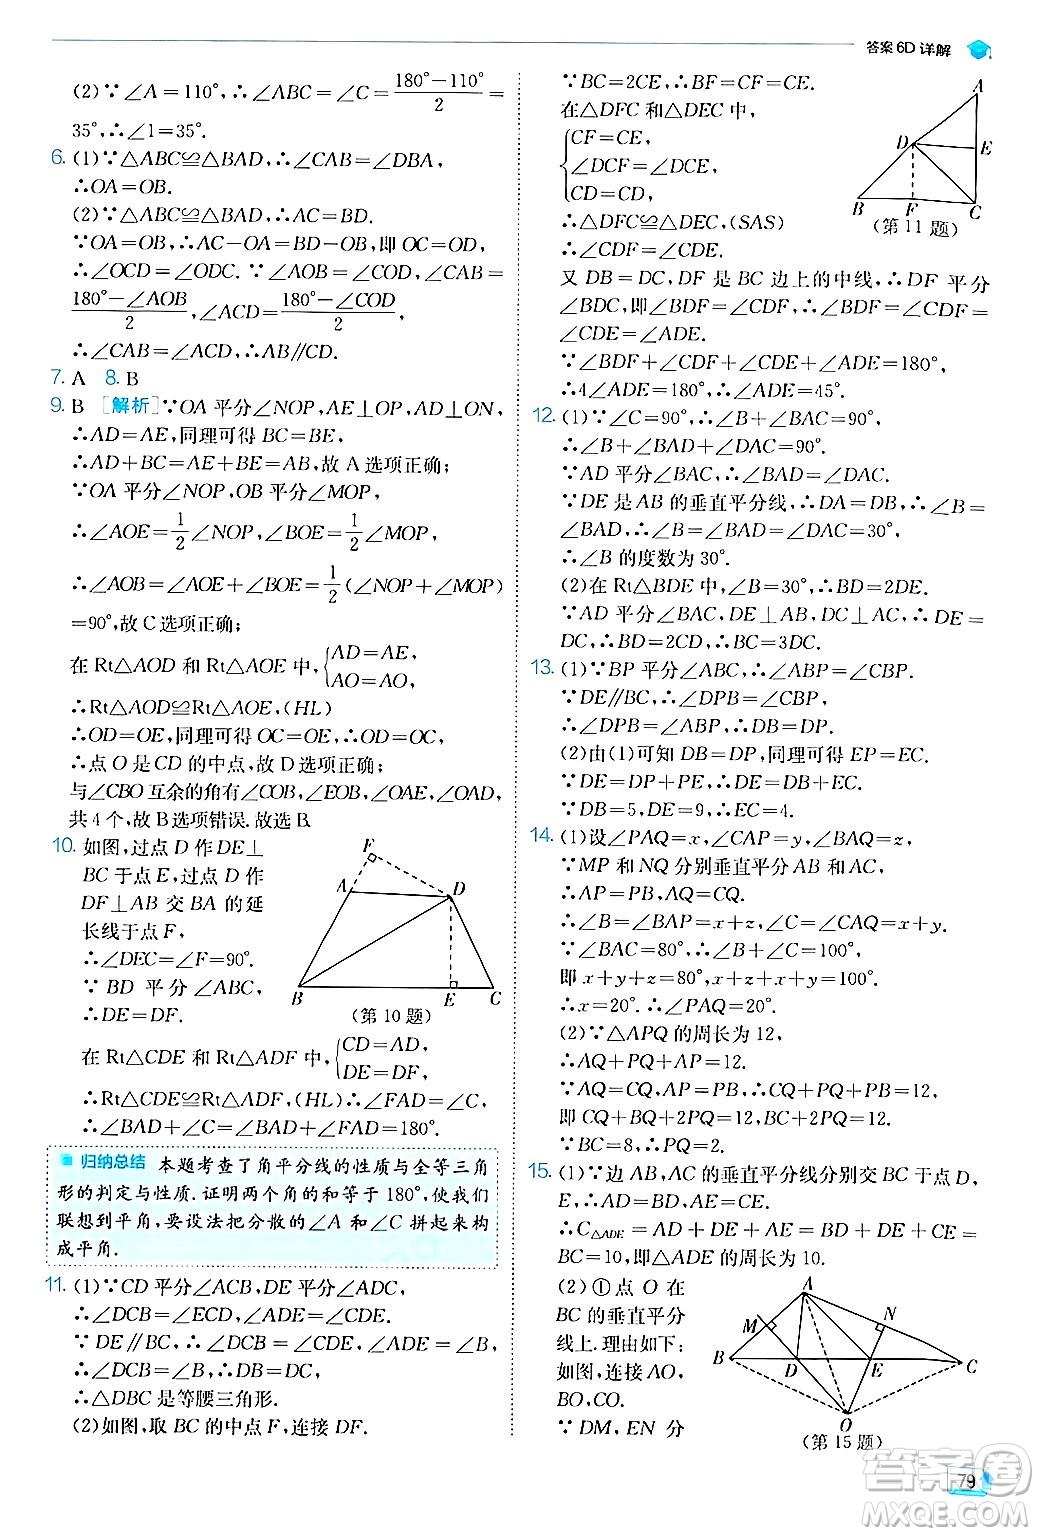 答案6D详解
(2)∵∠A=110°,∴∠ABC=∠C=(180°-110°)/2
35°,∴∠1=35°.
6. (1)∵△ABC≌△BAD,∴∠CAB=∠DBA,
∴OA=OB.
(2)∵△ABC≌△BAD,∴AC=BD.
∵OA=OB,∴AC-OA=BD-OB,即OC=OD,
∴∠OCD=∠ODC.∵∠AOB=∠COD,∠CAB=
(180°-∠AOB)/2,∠ACD=(180°-∠COD)/2,
∴∠CAB=∠ACD,∴AB∥CD.
7. A 8. B
9. B [解析]∵OA平分∠NOP,AE⊥OP,AD⊥ON,
∴AD=AE,同理可得BC=BE,
∴AD+BC=AE+BE=AB,故A选项正确;
∵OA平分∠NOP,OB平分∠MOP,
∴∠AOE=1/2∠NOP,∠BOE=1/2∠MOP,
∴∠AOB=∠AOE+∠BOE=1/2(∠NOP+∠MOP)
=90°,故C选项正确;
在Rt△AOD和Rt△AOE中,{AD=AE,
AO=AO,
∴Rt△AOD≌Rt△AOE,(HL)
∴OD=OE,同理可得OC=OE,∴OD=OC,
∴点O是CD的中点,故D选项正确;
与∠CBO互余的角有∠COB,∠EOB,∠OAE,∠OAD,
共4个,故B选项错误.故选B.
10. 如图,过点D作DE⊥
BC于点E,过点D作
DF⊥AB交BA的延
长线于点F,
∴∠DEC=∠F=90°.
∵BD平分∠ABC,
∴DE=DF.
F
A
D
B
E
C
(第10题)
在Rt△CDE和Rt△ADF中,{CD=AD,
DE=DF,
∴Rt△CDE≌Rt△ADF,(HL)∴∠FAD=∠C,
∴∠BAD+∠C=∠BAD+∠FAD=180°.
归纳总结 本题考查了角平分线的性质与全等三角
形的判定与性质.证明两个角的和等于180°,使我们
联想到平角,要设法把分散的∠A和∠C拼起来构
成平角.
11. (1)∵CD平分∠ACB,DE平分∠ADC,
∴∠DCB=∠ECD,∠ADE=∠CDE.
∵DE∥BC,∴∠DCB=∠CDE,∠ADE=∠B,
∴∠DCB=∠B,∴DB=DC,
∴△DBC是等腰三角形.
(2)如图,取BC的中点F,连接DF.
∵BC=2CE,∴BF=CF=CE.
在△DFC和△DEC中,
{CF=CE,
∠DCF=∠DCE,
CD=CD,
∴△DFC≌△DEC,(SAS)
∴∠CDF=∠CDE.
A
D
E
B
F
C
(第11题)
又DB=DC,DF是BC边上的中线,∴DF平分
∠BDC,即∠BDF=∠CDF,∴∠BDF=∠CDF=
∠CDE=∠ADE.
∵∠BDF+∠CDF+∠CDE+∠ADE=180°,
∴4∠ADE=180°,∴∠ADE=45°.
12. (1)∵∠C=90°,∴∠B+∠BAC=90°,
∴∠B+∠BAD+∠DAC=90°.
∵AD平分∠BAC,∴∠BAD=∠DAC.
∵DE是AB的垂直平分线,∴DA=DB,∴∠B=
∠BAD,∴∠B=∠BAD=∠DAC=30°,
∴∠B的度数为30°.
(2)在Rt△BDE中,∠B=30°,∴BD=2DE.
∵AD平分∠BAC,DE⊥AB,DC⊥AC,∴DE=
DC,∴BD=2CD,∴BC=3DC.
13. (1)∵BP平分∠ABC,∴∠ABP=∠CBP.
∵DE∥BC,∴∠DPB=∠CBP,
∴∠DPB=∠ABP,∴DB=DP.
(2)由(1)可知DB=DP,同理可得EP=EC.
∵DE=DP+PE,∴DE=DB+CE.
∵DB=5,DE=9,∴CE=4.
14. (1)设∠PAQ=x,∠CAP=y,∠BAQ=z,
∵MP和NQ分别垂直平分AB和AC,
∴AP=PB,AQ=CQ.
∴∠B=∠BAP=x+z,∠C=∠CAQ=x+y.
∵∠BAC=80°,∴∠B+∠C=100°,
即x+y+z=80°,x+z+x+y=100°,
∴x=20°.∴∠PAQ=20°.
(2)∵△APQ的周长为12,
∴AQ+PQ+AP=12.
∵AQ=CQ,AP=PB,∴CQ+PQ+PB=12,
即CQ+BQ+2PQ=12,BC+2PQ=12,
∵BC=8,∴PQ=2.
15. (1)∵边AB,AC的垂直平分线分别交BC于点D,
E,∴DB=DA,EA=EC,
∴C△ADE=AD+DE+AE=BD+DE+CE=
BC=10,即△ADE的周长为10.
(2)①点O在
BC的垂直平分
线上.理由如下:
如图,连接AO,
BO,CO.
∵DM,EN分
A
M
N
B
D
E
C
O
(第15题)
79
答案圈
MXQE.COM